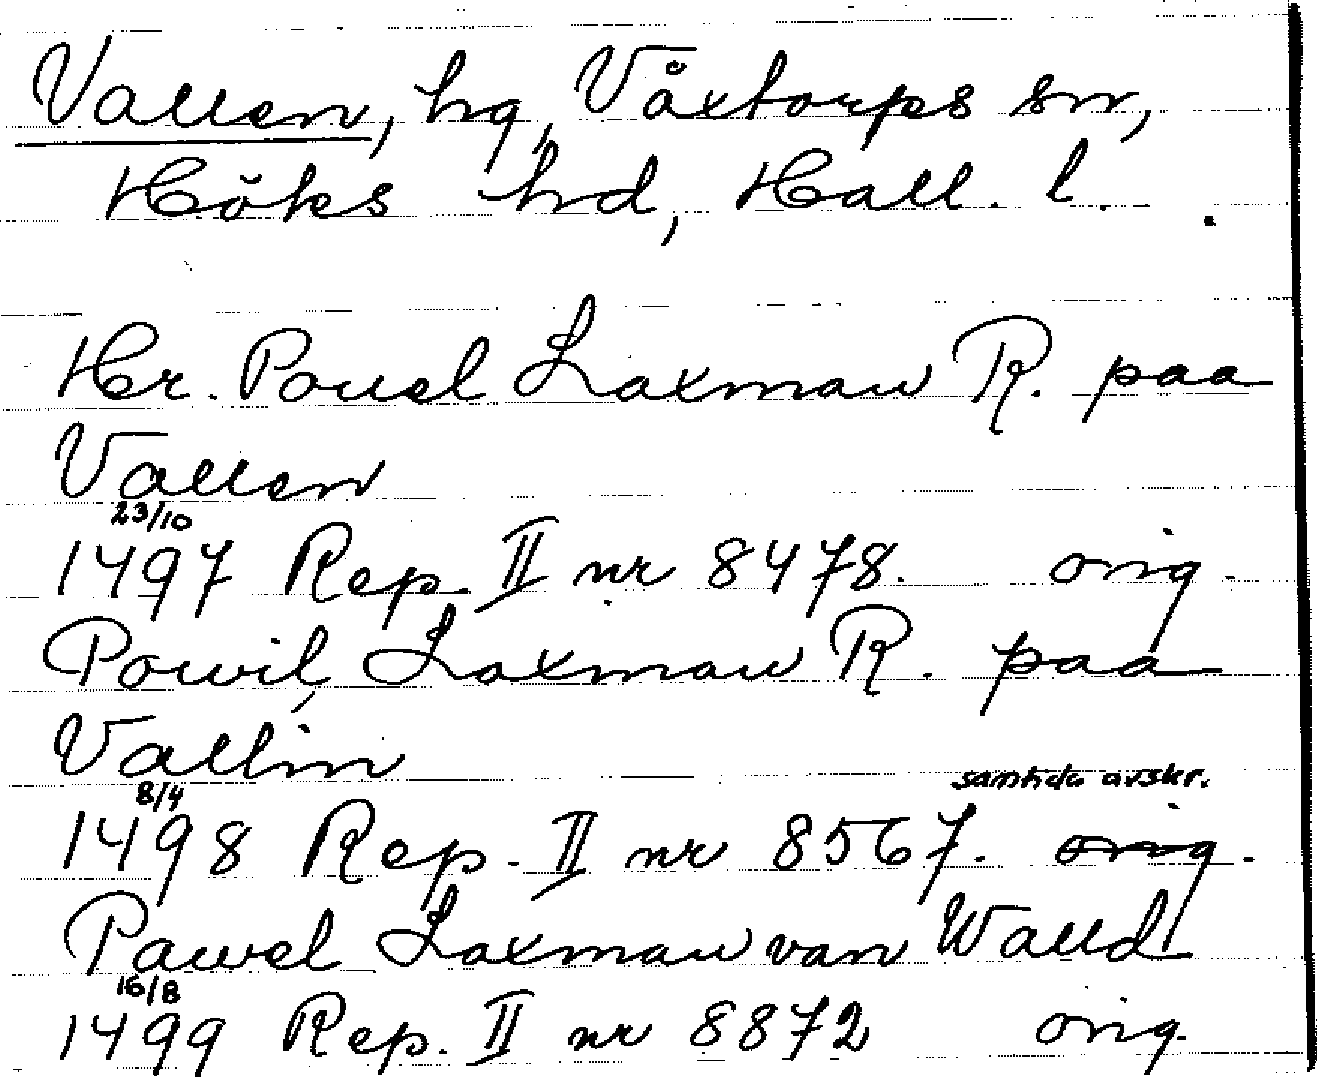 Vallen, hg, Våxtorps sn,
Höks hd, Hall. l.
Hr. Pouel Laxman R. paa
Vallen
23/10
1497 Rep. II nr 8478. orig.
Powil, Laxman R. paa
Vallin
8/4 samtida avskr.
1498 Rep. II nr 8567. orig.
Pawel Laxman van Walld
16/8
1499 Rep. II nr 8872 orig.